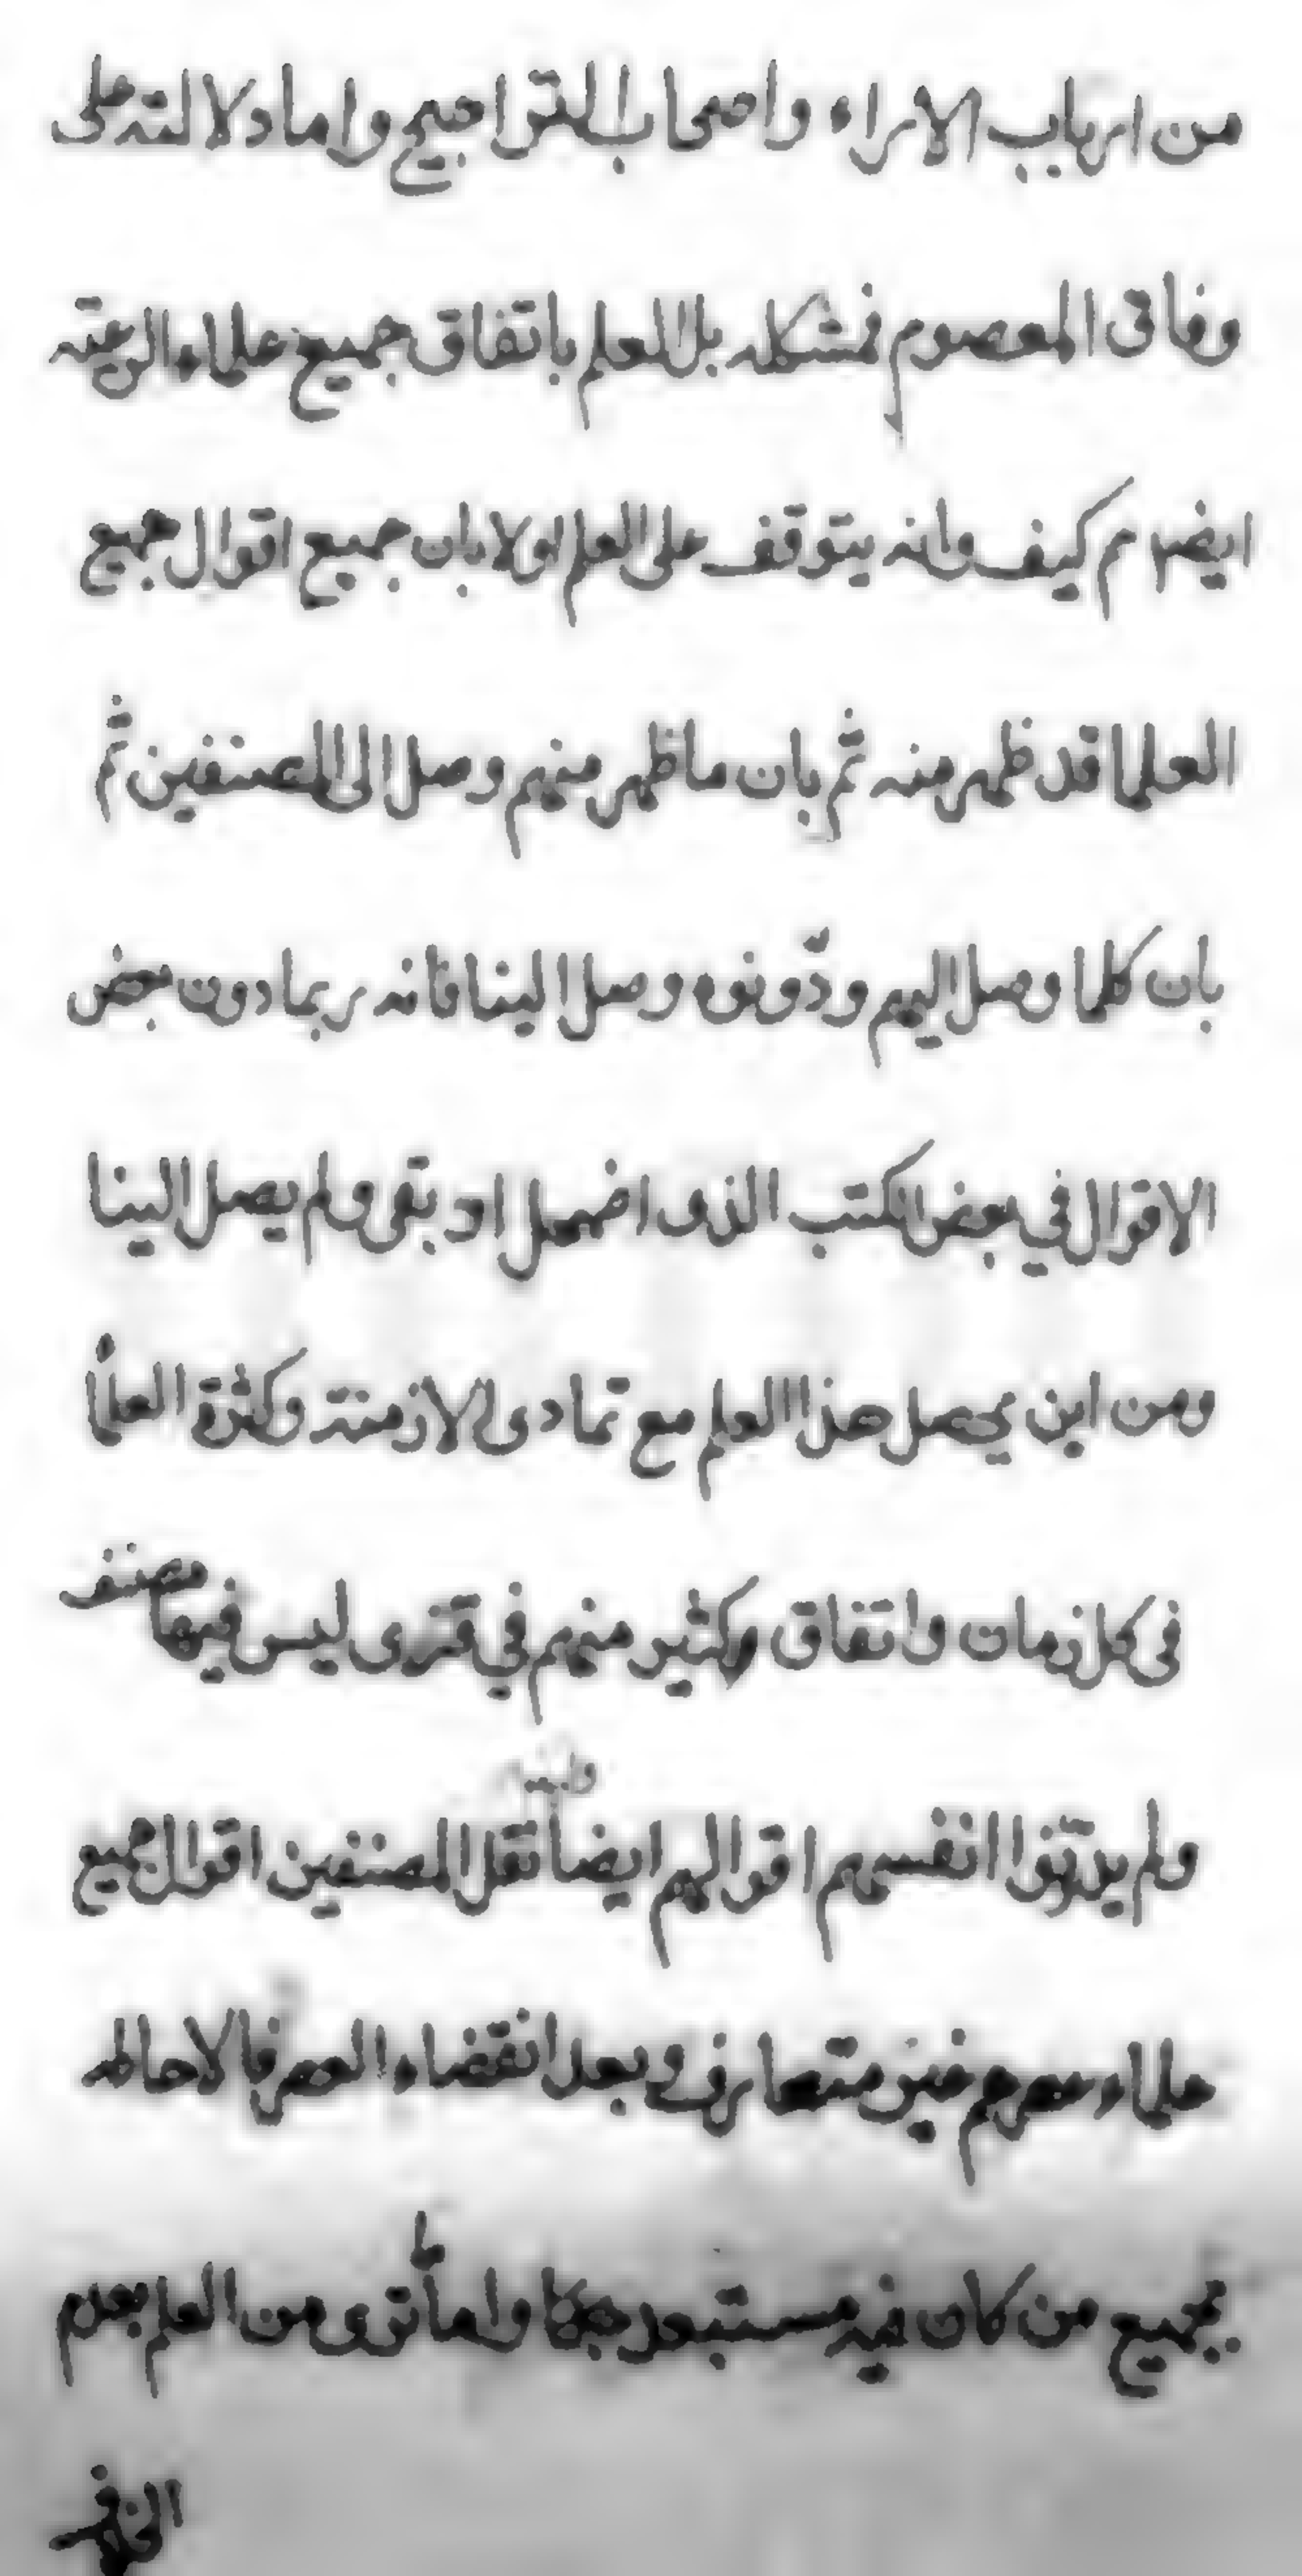 من ارباب الاراء واصحاب التراجيح واما دلالته على
وفاق المعصوم فمشكله بل للعلم باتفاق جميع علماء الرعية
ايضا م كيف وانه يتوقف على العلم اولا بان جميع اقوال جميع
العلما قد ظهر منه ثم بان ما ظهر منهم وصل الى المصنفين ثم
بان كلما وصل اليهم ودّونوه وصل الينا فانه ربما دون بعض
الاقوال في بعض الكتب الذى اضمحل او بقى ولم يصل الينا
ومن اين يحصل هذا العلم مع تمادى الازمنة وكثرة العلمأ
فى كل زمان واتفاق كثير منهم في قرى ليس فيها مصنف
ولم يدونوا انفسهم اقوالهم ايضا نقل المصنفين اقوال جميع
علماء عصرهم فغير متعارف وبعد انقضاء العصر فالاحاطه
بجميع من كان فيه مستبعد جدا واما ترى من العلم بعدم